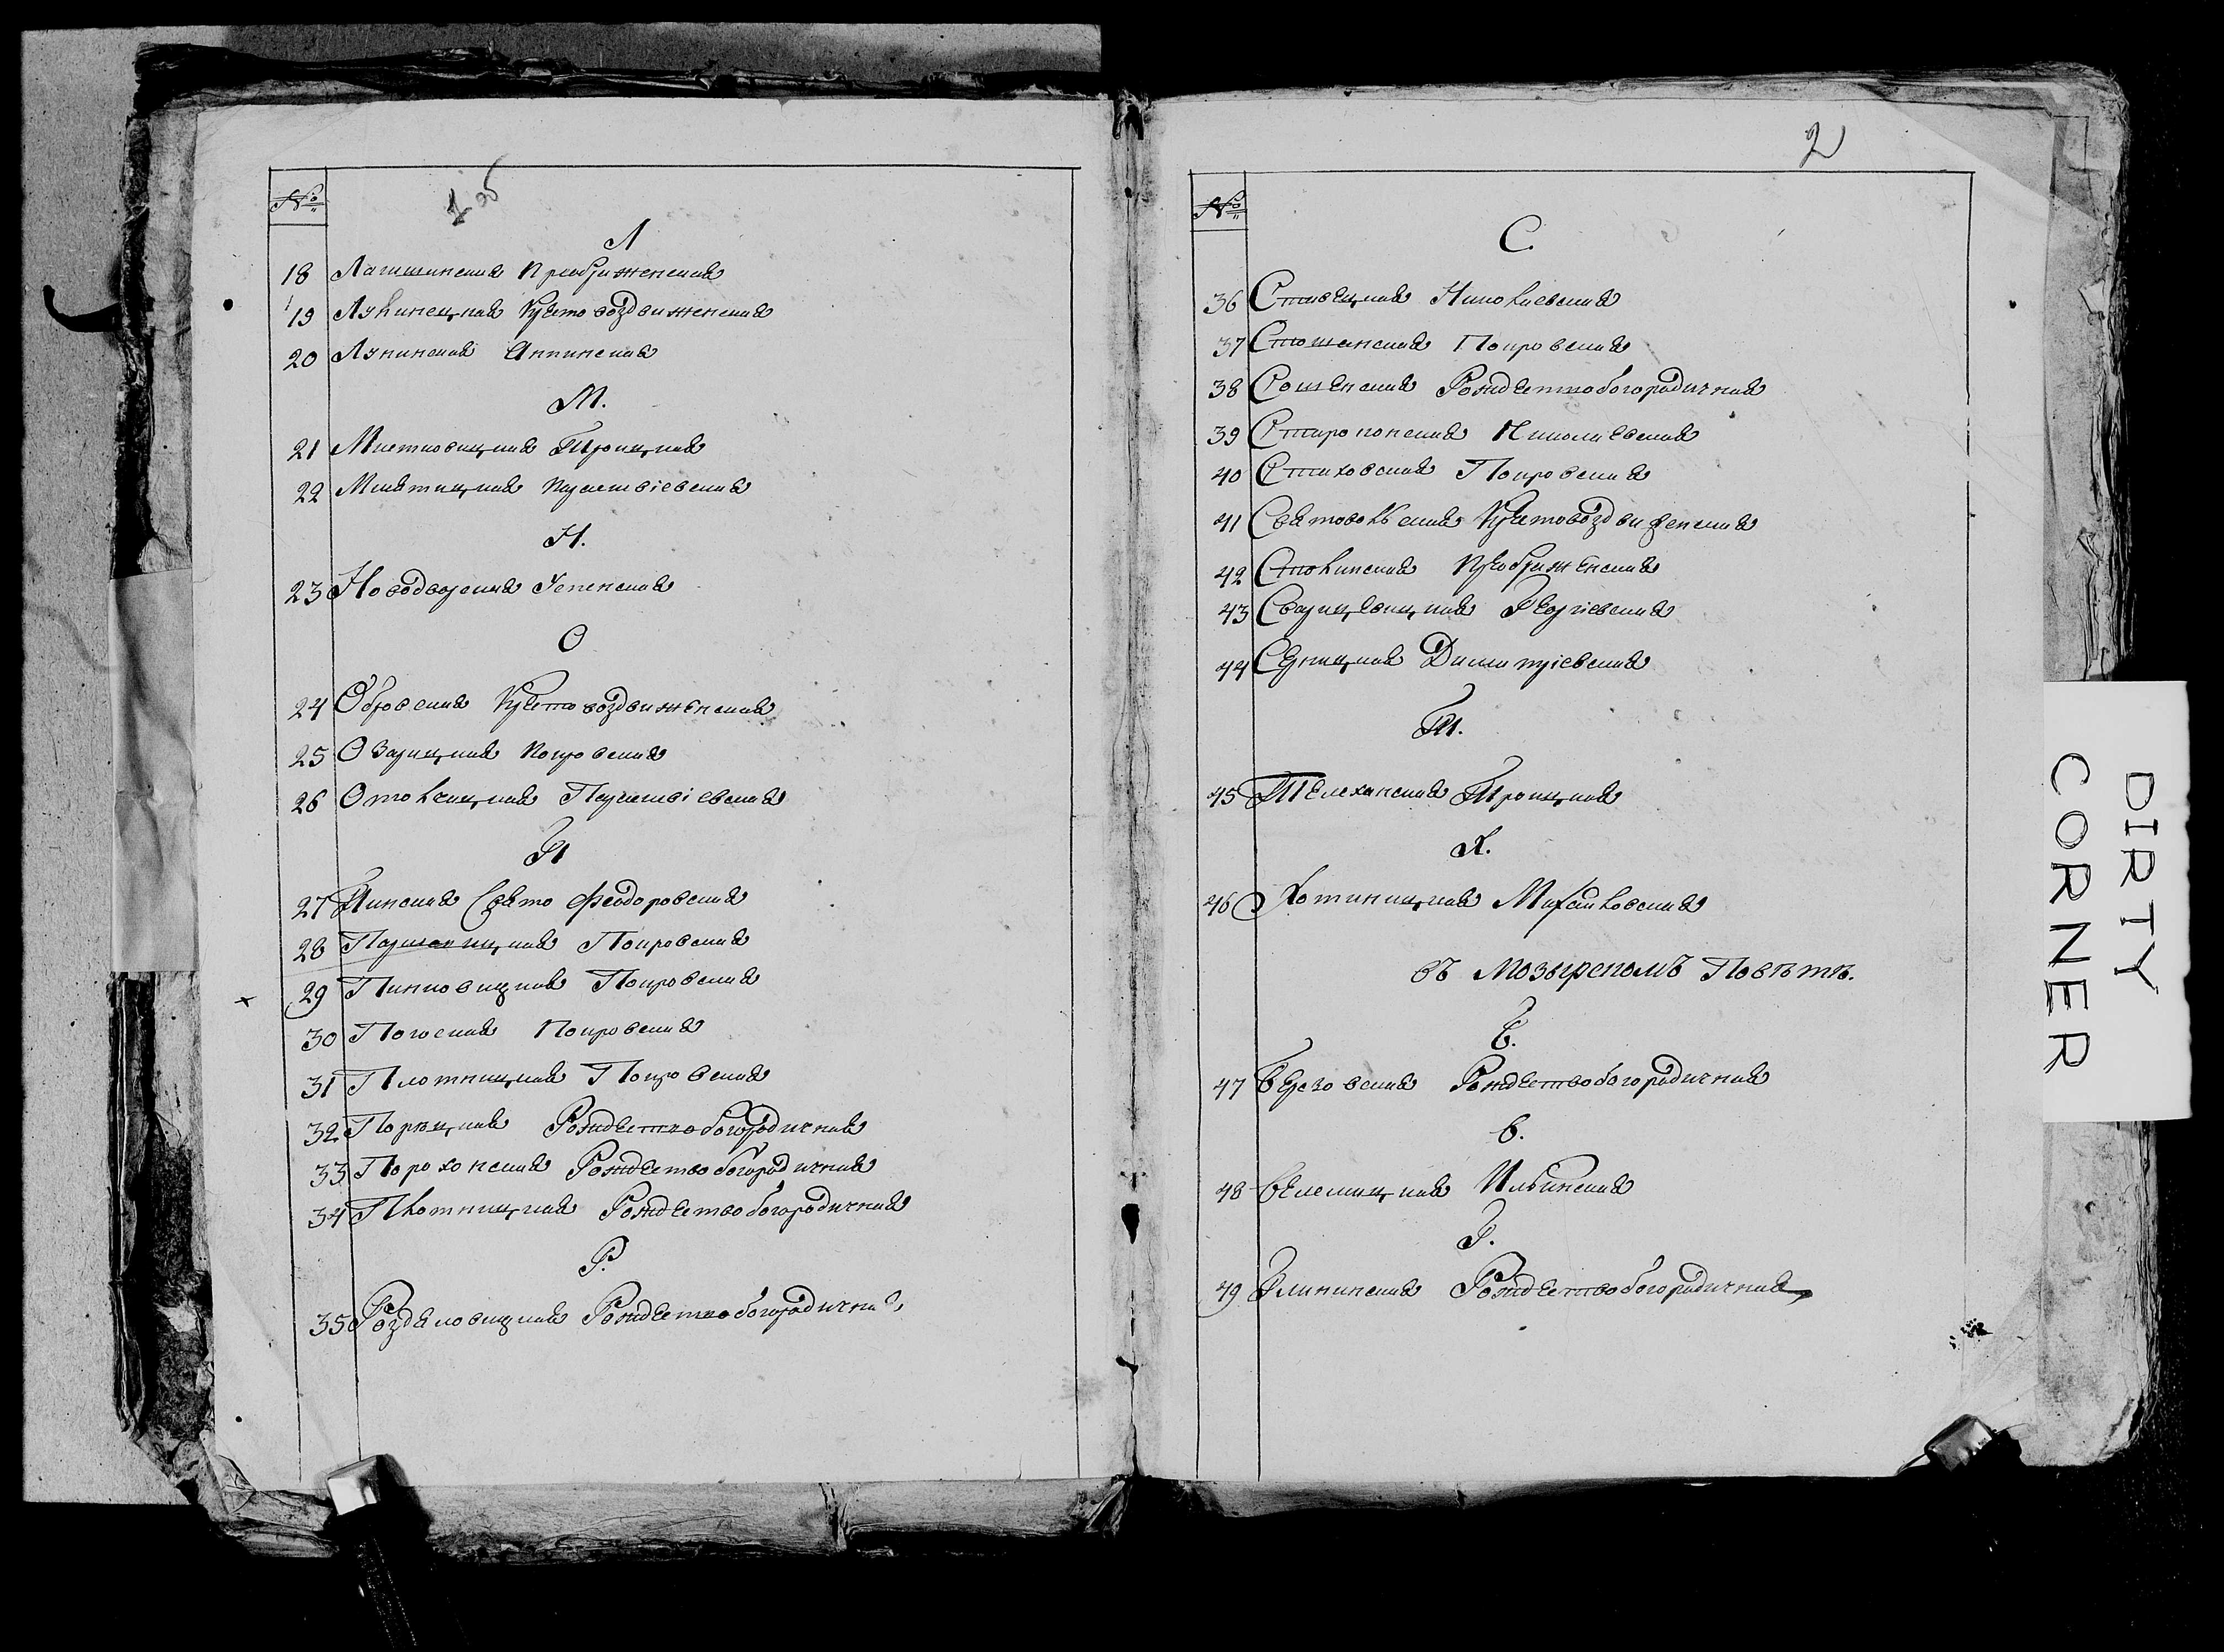 1 об
№
Л
18 Лагишинская Преображенская
19 Лунинецкая Крестовоздвиженская
20 Лунинская Аннинская
М.
21 Мистковицкая Троицкая
22 Мшятицкая Параскевіевская
Н.
23 Новодворская Успенская
О
24 Обровская Крестовоздвиженская
25 Озарицкая Покровская
26 Отолчицкая Параскевіевская
П
27 Пинская Свято Феодоровская
28 Паршевицкая Покровская
29 Пинковицкая Покровская
30 Погоская Покровская
31 Плотницкая Покровская
32 Порѣцкая Рождествобогородичная
33 Порохонская Рождествобогородичная
34 Плотницкая Рождествобогородичная
Р.
35 Розделовицкая Рождествобогородичная
2
№
С.
36 Ставецкая Николаевская
37 Стошанская Покровская
38 Сошенская Рождествобогородичная
39 Староконская Николаевская
40 Стаховская Покровская
41 Святовольская Крестовоздвиженская
42 Столинская Преображенская
43 Сварицевицкая Георгіевская
44 Серницкая Димитріевская
Т.
45 Телеханская Троицкая
Х.
46 Хотиницкая Михайловская
въ Мозырскомъ Повѣтѣ.
Б.
47 Березовская Рождествобогородичная
В.
48 Велемицкая Ильинская
Г.
49 Глининская Рождествобогородичная
DIRTY
CORNER